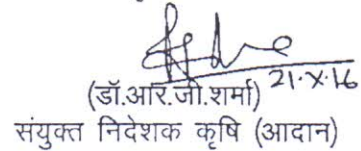 21.X.16
(डॉ.आर.जी.शर्मा)
संयुक्त निदेशक कृषि (आदान)